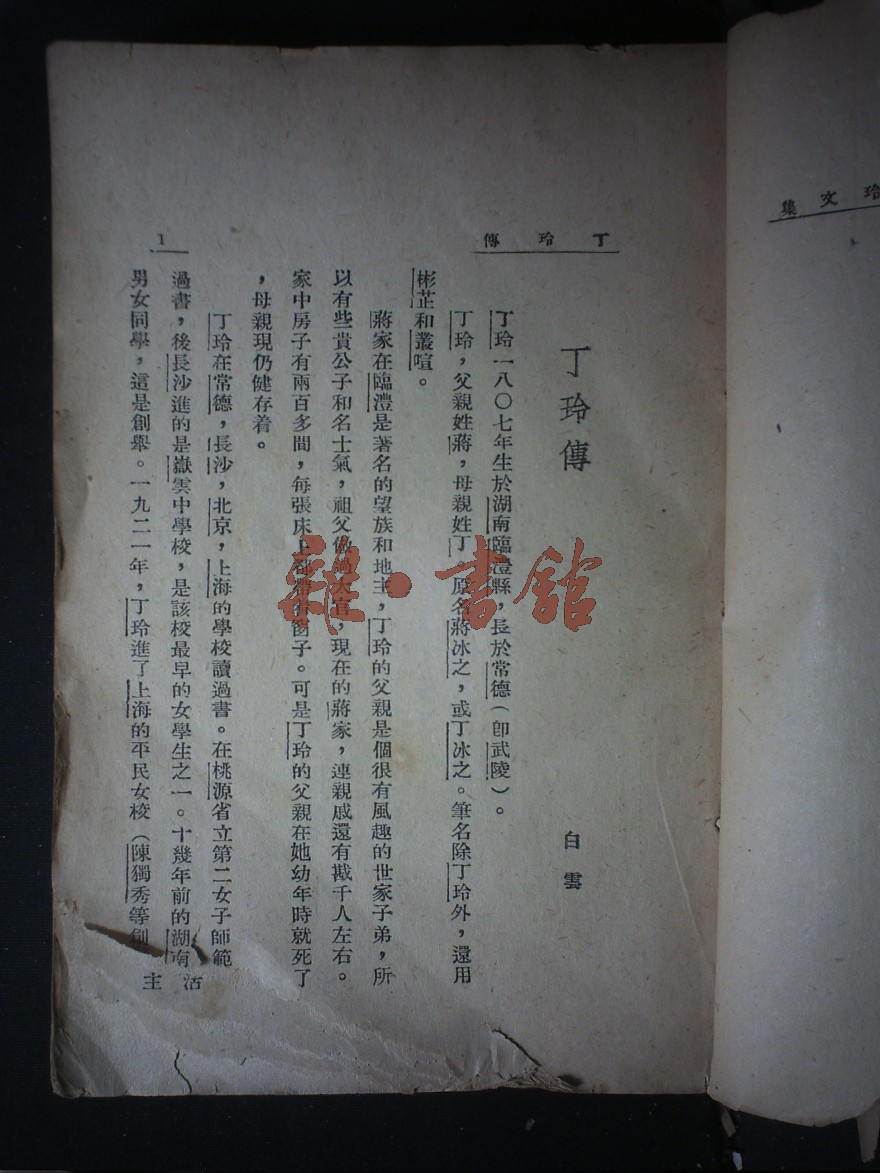 丁玲傳
1
丁玲傳
白雲
丁玲一八〇七年生於湖南臨澧縣，長於常德（卽武陵）。
丁玲，父親姓蔣，母親姓丁 原名蔣冰之，或丁冰之。筆名除丁玲外，還用
彬芷和叢喧。
蔣家在臨澧是著名的望族和地主，丁玲的父親是個很有風趣的世家子弟，所
以有些貴公子和名士氣，祖父做過大官，現在的蔣家，連親戚還有戳千人左右。
家中房子有兩百多間，每張床上都帶有窗子。可是丁玲的父親在她幼年時就死了
，母親現仍健存着。
丁玲在常德，長沙，北京，上海的學校讀過書。在桃源省立第二女子師範
過書，後長沙進的是嶽雲中學校，是該校最早的女學生之一。十幾年前的湖南
男女同學，這是創舉。一九二一年，丁玲進了上海的平民女校（陳獨秀等創
活
主
玲文集
雜·書館